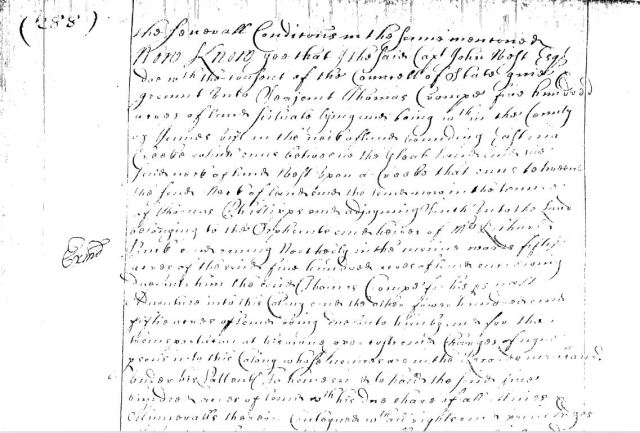 (288)
the severall Conditions in the same mentioned
Now Know yee that I the said Capt John West Esqr
doe with the consent of the Councell of State give
grant unto Serjent Thomas Crompe five hundred
acres of land situate lying and being in the County
of James in the neck of land bounding East on a
Creeke between the Gleab land and the
said neck of land West upon a Creeke that runs between
the said Neck of land and the land now in the tenure
of Thomas Phillipps and adjoyning South unto the land
belonging to the Orphants and heires of Mr
and runing Northerly in the maine woods fifty
Exmd
acres of the said five hundred acres of land
due unto him the said Thomas Crompe for his
Adventure into this Colony and the other fower hundred and
fiftie acres of land being due unto him by and for the
transportation at his owne proper costs and Charges of nyne
psons into this Colony whose names are in the
under this Pattent To have and to hould the said five
hundred acres of land with his due share of all Mines
Mineralls therein Conteyned with all rights and priviledges